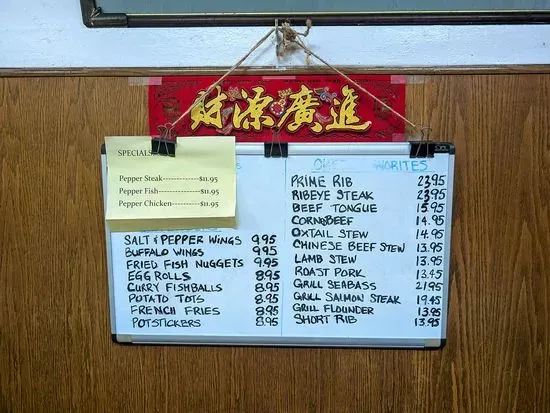 財源廣進
SPECIALS
Pepper Steak------------$11.95
Pepper Fish-------------$11.95
Pepper Chicken---------$11.95
SALT & PEPPER WINGS 9.95
BUFFALO WINGS 9.95
FRIED FISH NUGGETS 9.95
EGG ROLLS 8.95
CURRY FISHBALLS 8.95
POTATO TOTS 8.95
FRENCH FRIES 8.95
POTSTICKERS 8.95
ORITES
PRIME RIB 23.95
RIBEYE STEAK 23.95
BEEF TONGUE 15.95
CORNEDBEEF 14.95
OXTAIL STEW 14.95
CHINESE BEEF STEW 13.95
LAMB STEW 13.95
ROAST PORK 13.45
GRILL SEABASS 21.95
GRILL SALMON STEAK 19.45
GRILL FLOUNDER 13.95
SHORT RIB 13.95